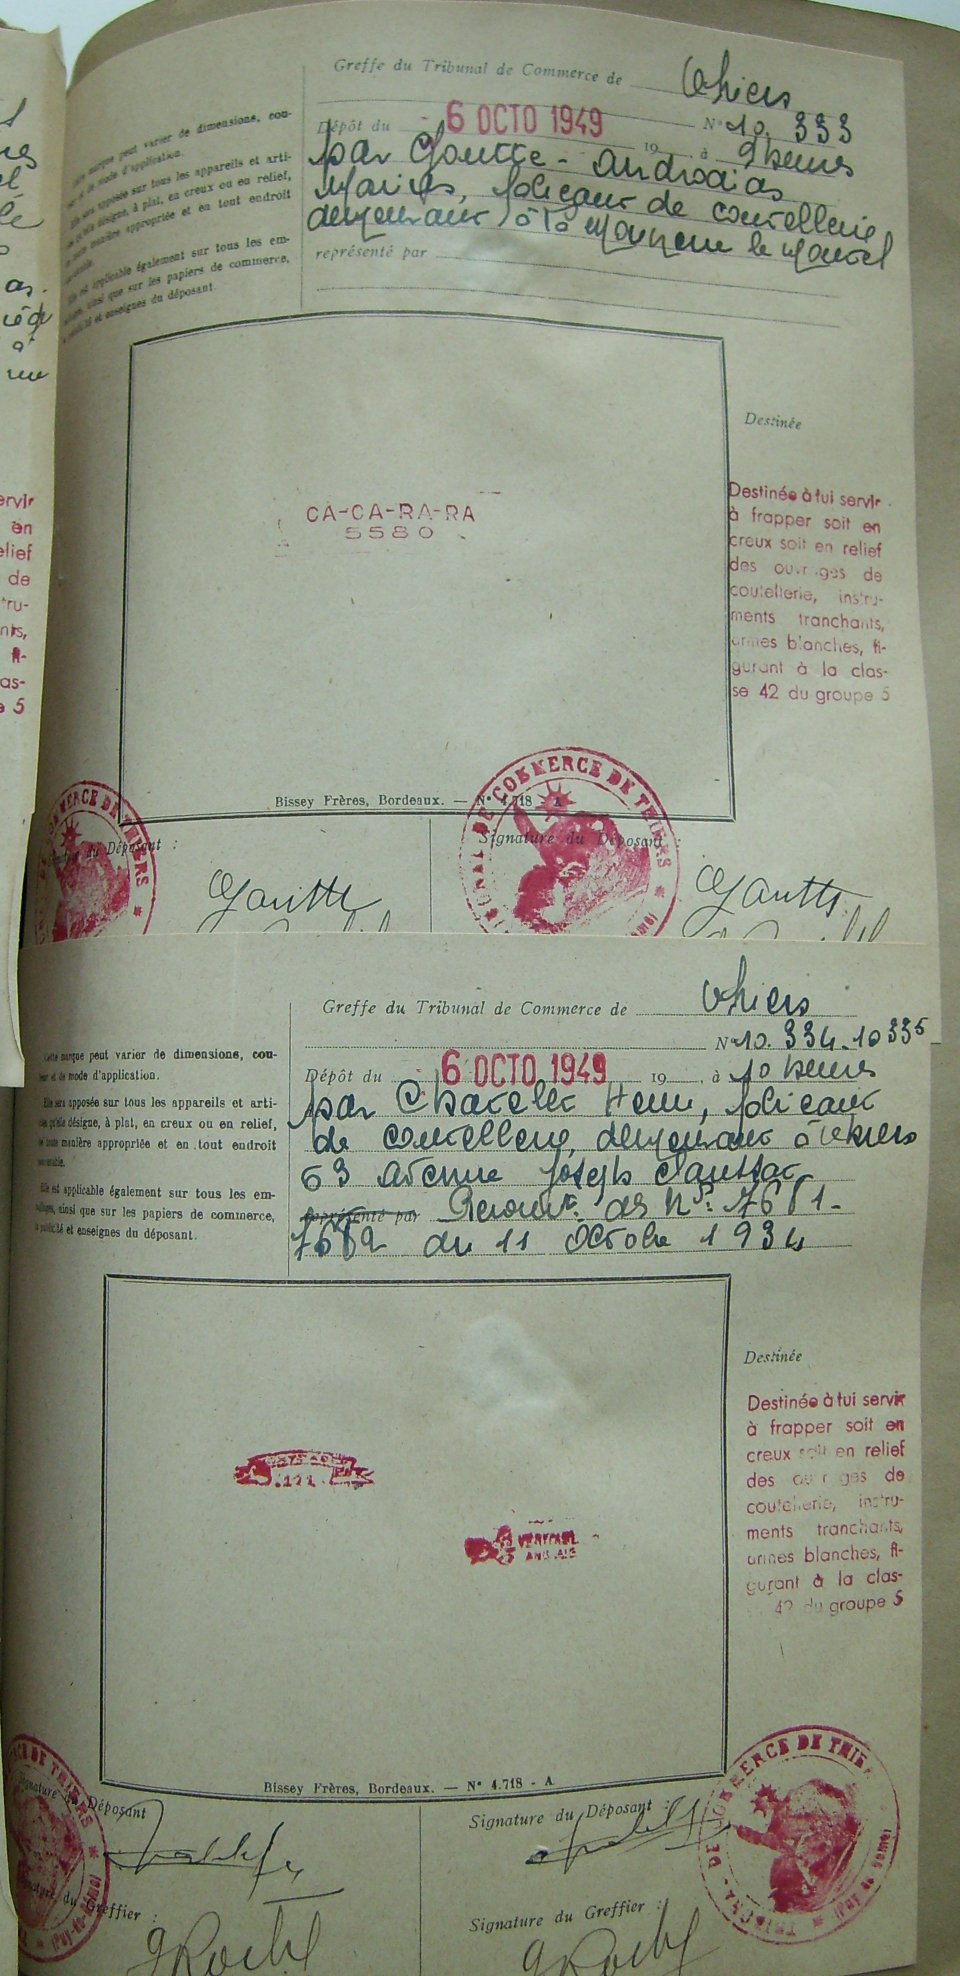 Greffe du Tribunal de Commerce de Thiers
N° 10. 333
Dépôt du 6 OCTO 1949 19 à 9 heures
par Goutte - Androdias
Marius, fabricant de coutellerie
demeurant à la
représenté par
marque peut varier de dimensions, cou-
et de mode d'application.
sera apposée sur tous les appareils et arti-
désigne, à plat, en creux ou en relief,
manière appropriée et en tout endroit
Elle est applicable également sur tous les em-
ainsi que sur les papiers de commerce,
et enseignes du déposant.
CA-CA-RA-RA
5580
Destinée
Destinée à lui servir
à frapper soit en
creux soit en relief
des ouvrages de
coutellerie, instru-
ments tranchants,
armes blanches, fi-
gurant à la clas-
se 42 du groupe 5
ervir
en
elief
de
ru-
nts,
fi-
as-
e 5
Bissey Frères, Bordeaux. — N° 4.718 - A
COMMERCE DE THIERS
Signature du Déposant :
Signature du Déposant :
Goutte
Goutte
Greffe du Tribunal de Commerce de Thiers
N° 10. 334. 10335
Dépôt du 6 OCTO 1949 19 à 10 heures
par Chatelet Henri, fabricant
de coutellerie, demeurant à Thiers
63 Avenue Joseph Claussat
représenté par Renouv. des Nos. 7681-
7682 du 11 Octobre 1934
Cette marque peut varier de dimensions, cou-
leur et de mode d'application.
Elle sera apposée sur tous les appareils et arti-
cles qu'elle désigne, à plat, en creux ou en relief,
de toute manière appropriée et en tout endroit
convenable.
Elle est applicable également sur tous les em-
ballages, ainsi que sur les papiers de commerce,
la publicité et enseignes du déposant.
VERITABL
ANGLAIS
Destinée
Destinée à lui servir
à frapper soit en
creux soit en relief
des ouvrages de
coutellerie, instru-
ments tranchants,
armes blanches, fi-
gurant à la clas-
42 du groupe 5
Bissey Frères, Bordeaux. — N° 4.718 - A
Signature du Déposant
Signature du Déposant :
Signature du Greffier :
Signature du Greffier :
COMMERCE DE THIERS
(Puy-de-Dôme)